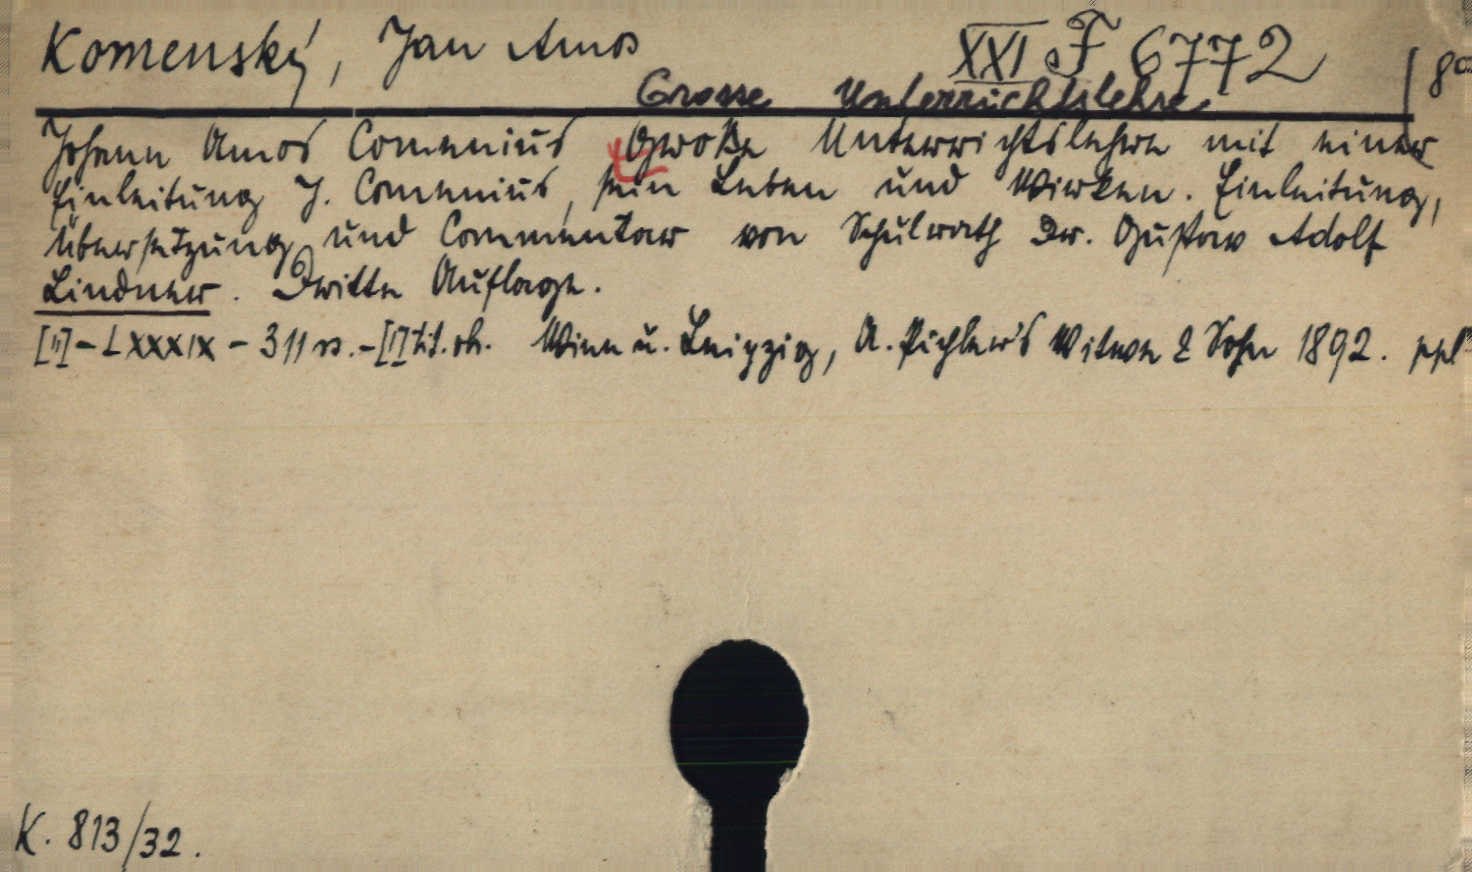 Komenský, Jan Amos XXI F 6772 8°
Grosse Unterrichtslehre
Johann Amos Comenius Große Unterrichtslehre mit einer
Einleitung J. Comenius, sein Leben und Wirken. Einleitung,
Übersetzung und Commentar von Schulrath Dr. Gustav Adolf
Lindner. Dritte Auflage.
[II]-LXXXIX-311 ss.-[1] tit. ob. Wien u. Leipzig, A. Pichler's Witwe & Sohn 1892. ppl
K. 813/32.